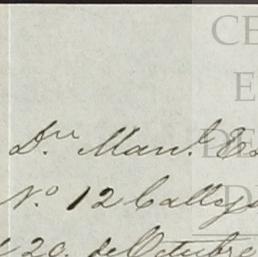 CE
E
DE
D
Dn. Manl. E
No. 12 Calley
20. de Octubre